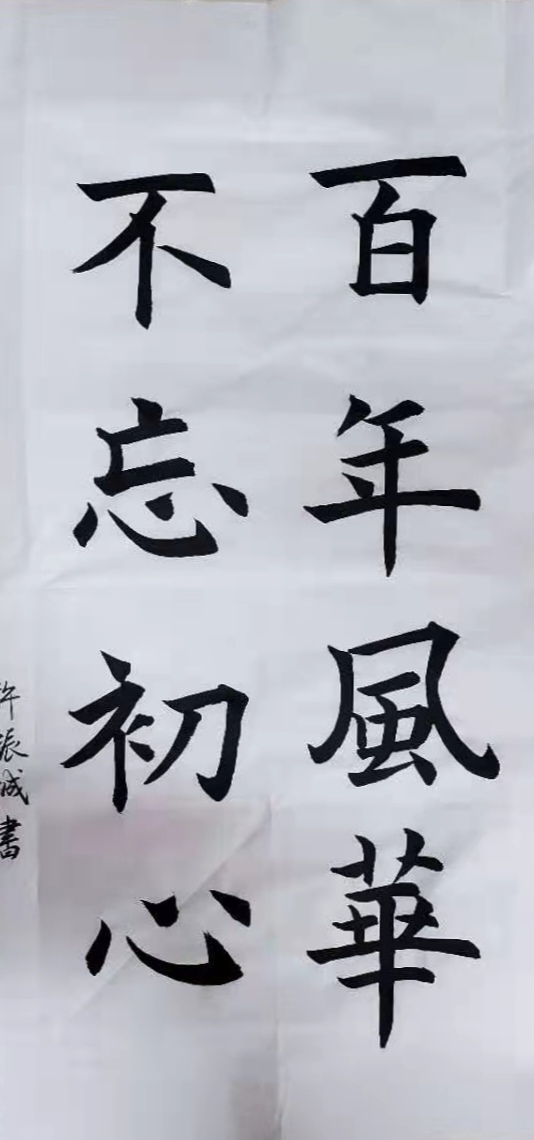 百年風華
不忘初心
許振成書